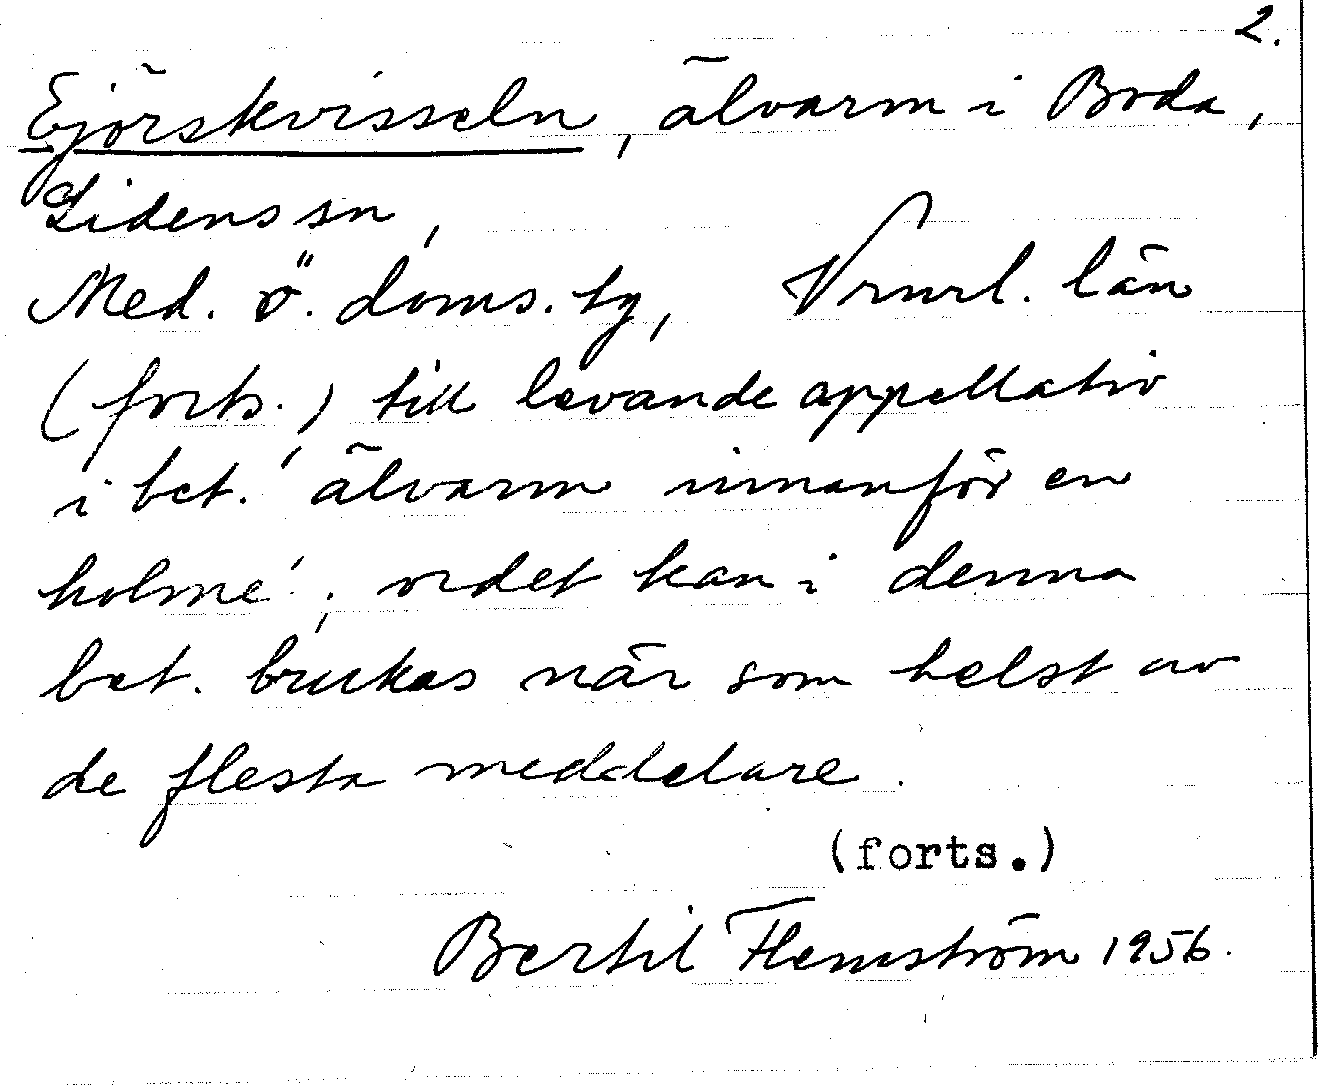 2.
Ejörskvisseln, älvarm i Boda,
Lidens sn,
Med. ö. doms. tg, Vrnrl. län
(forts.) till levande appellativ
i bet. 'älvarm innanför en
holme'; ordet kan i denna
bet. brukas när som helst av
de flesta meddelare.
(forts.)
Bertil Flemström 1956.